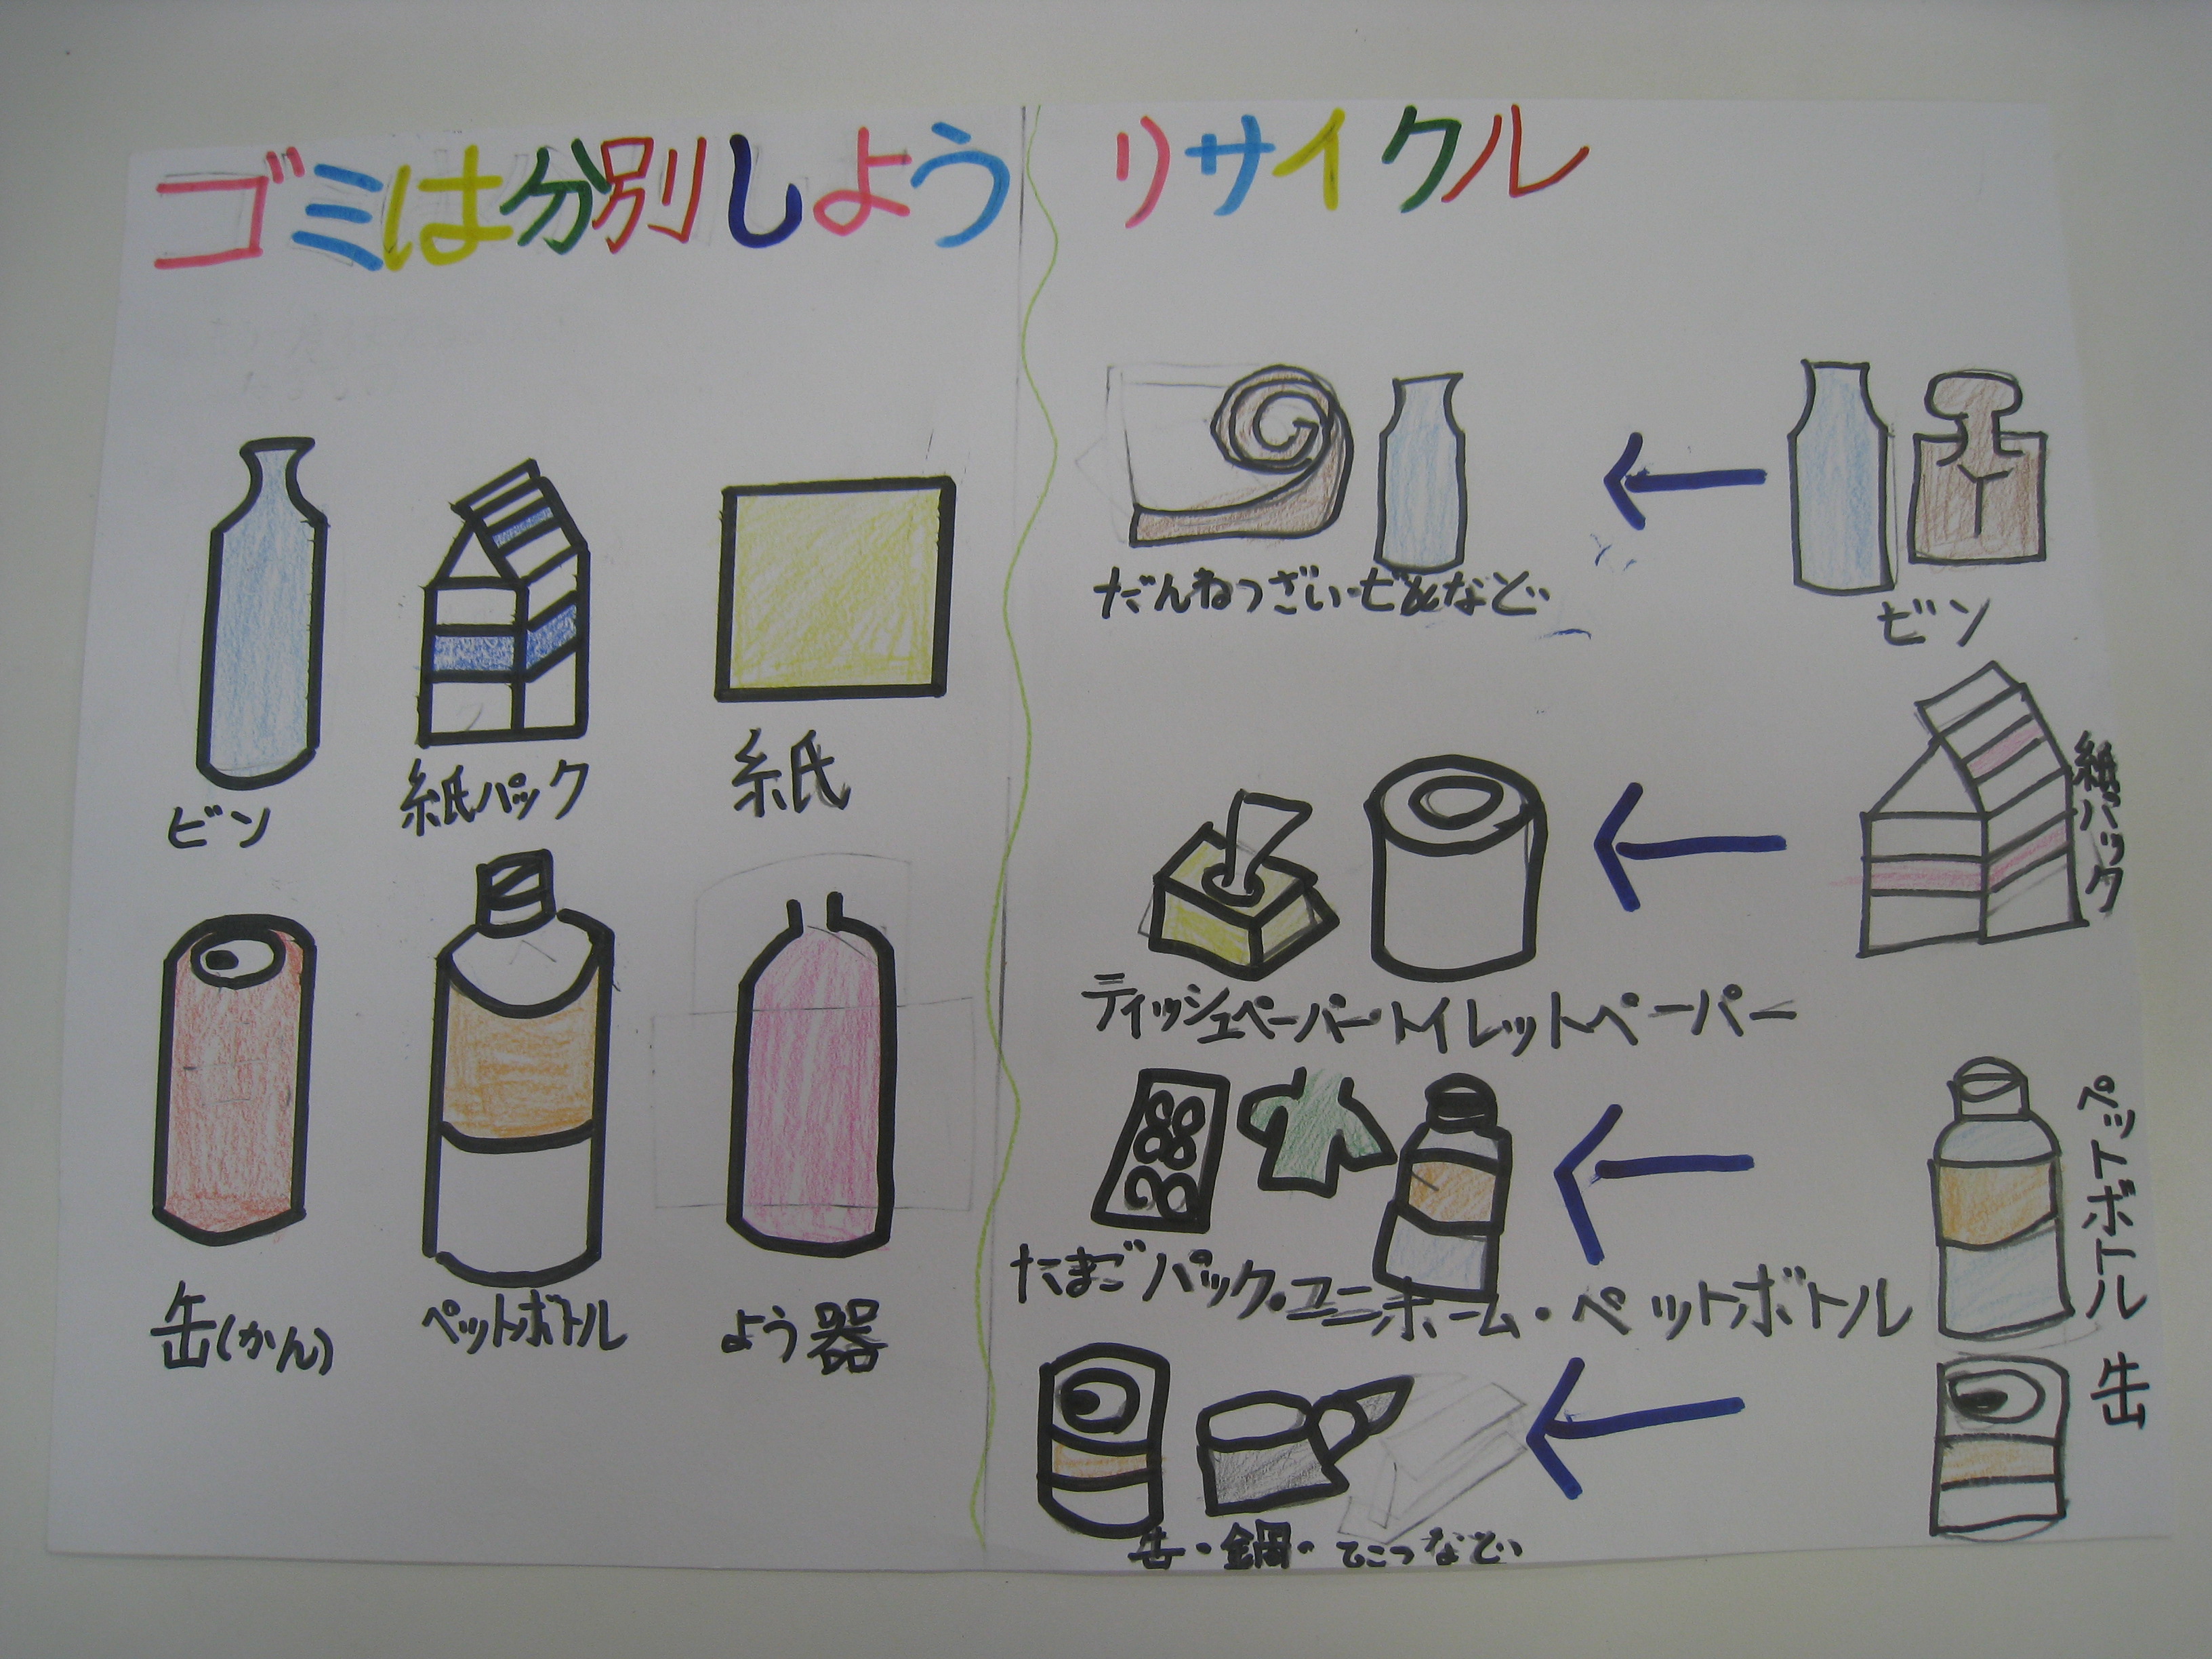 ゴミは分別しよう
ビン
紙パック
紙
缶(かん)
ペットボトル
よう器
リサイクル
だんねつざい・ビンなど
ビン
ティッシュペーパー・トイレットペーパー
紙パック
たまごパック・ユニホーム・ペットボトル
ペットボトル
缶・鍋・てっこつなど
缶